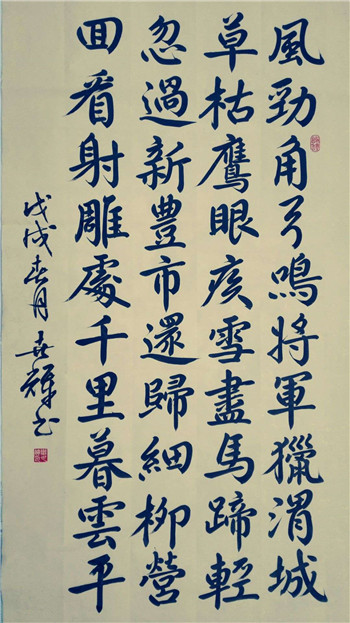 風勁角弓鳴將軍獵渭城
草枯鷹眼疾雪盡馬蹄輕
忽過新豐市還歸細柳營
回看射雕處千里暮雲平
戊戌春月喜輝书